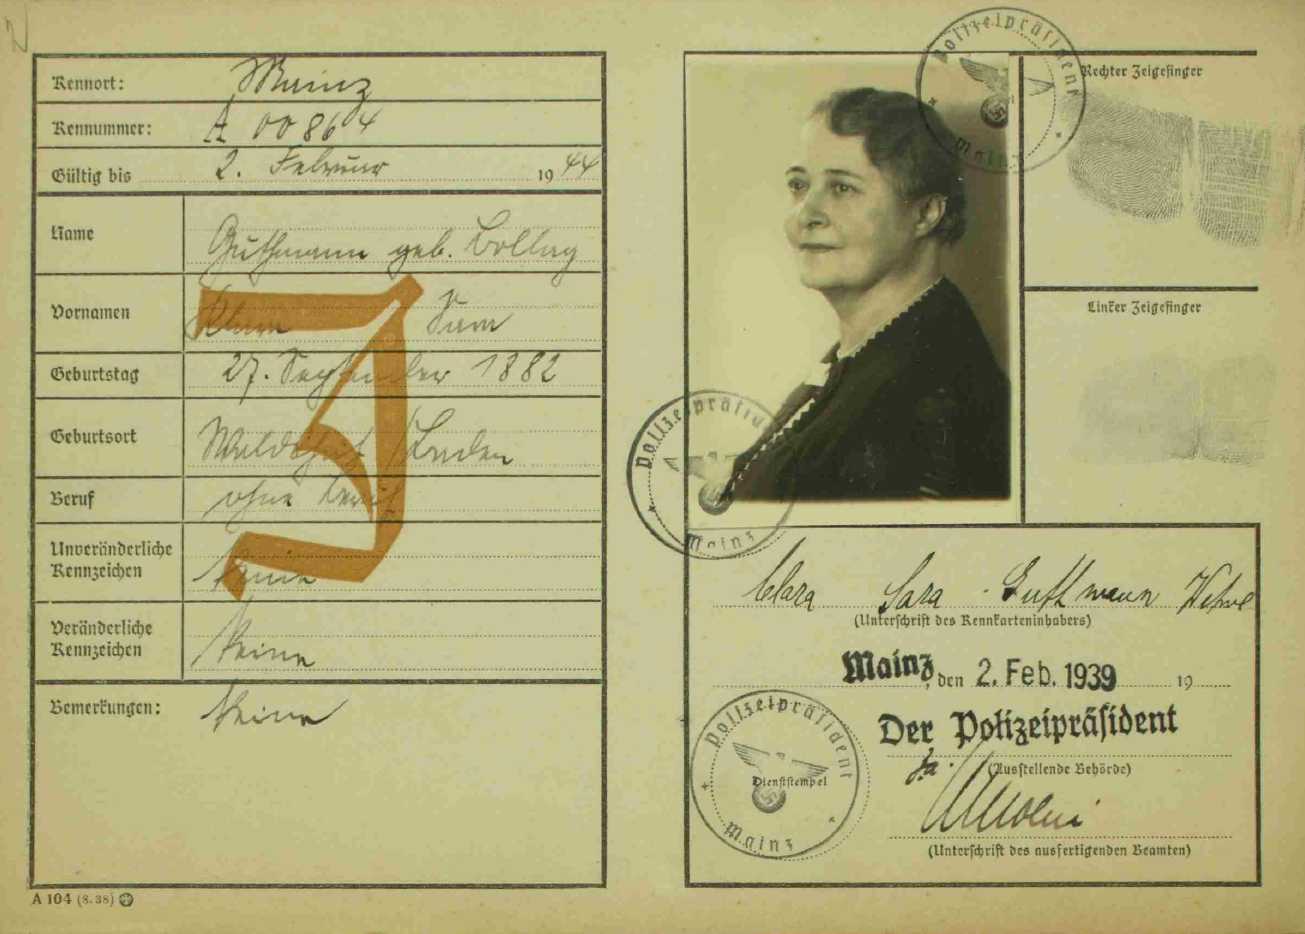 Kennort: Mainz
Kennummer: A 00864
Gültig bis 2. Februar 1944
Name Guthmann geb. Bollag
Vornamen Klara Sara
Geburtstag 27. September 1882
Geburtsort Waldshut / Baden
Beruf ohne Beruf
Unveränderliche
Kennzeichen Keine
Veränderliche
Kennzeichen Keine
Bemerkungen: Keine
J
A 104 (8. 38)
Polizeipräsident
Mainz
Rechter Zeigefinger
Linker Zeigefinger
Polizeipräsident
Mainz
Clara Sara Guthmann Witwe
(Unterschrift des Kennkarteninhabers)
Mainz, den 2. Feb. 1939 19
Der Polizeipräsident
(Ausstellende Behörde)
Polizeipräsident
Dienststempel
Mainz
(Unterschrift des ausfertigenden Beamten)